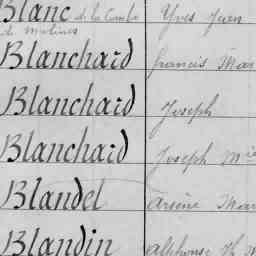 Blanc de la Combe Yves Jean
de Molines
Blanchard francis Mar
Blanchard Joseph
Blanchard Joseph Mie
Blandel Arsène Mar
Blandin Alphonse